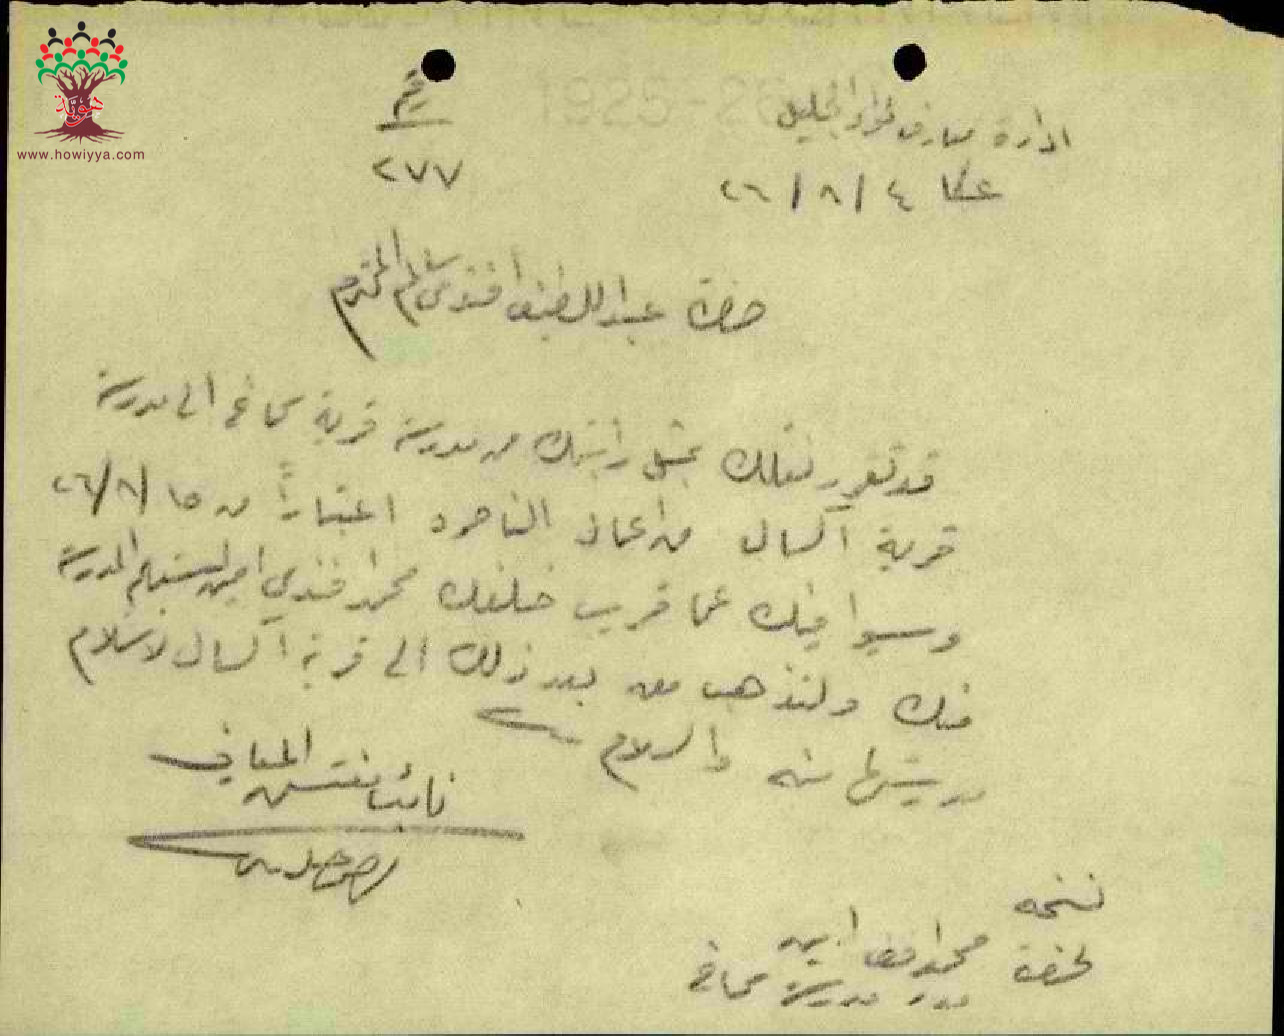 هوية
www.howiyya.com
1925-26
ادارة معارف لواء الجليل
رقم
٢٧٧
عكا ٤ / ٨ / ٢٦
حضرة عبد اللطيف افندي سالم المحترم
قد تقرر نقلك بمثل راتبك من مدرسة قرية سخنين الى مدرسة
قرية اكسال من اعمال الناصرة اعتباراً من ١٥ / ٨ / ٢٦
وسيوافيك عما قريب خلفك محمد افندي امين ليستلم المدرسة
منك ولتذهب معه بعد ذلك الى قرية اكسال لاستلام
مدرستها منه والسلام
نائب مفتش المعارف
نسخة
لحضرة محمد افندي امين
مدير مدرسة